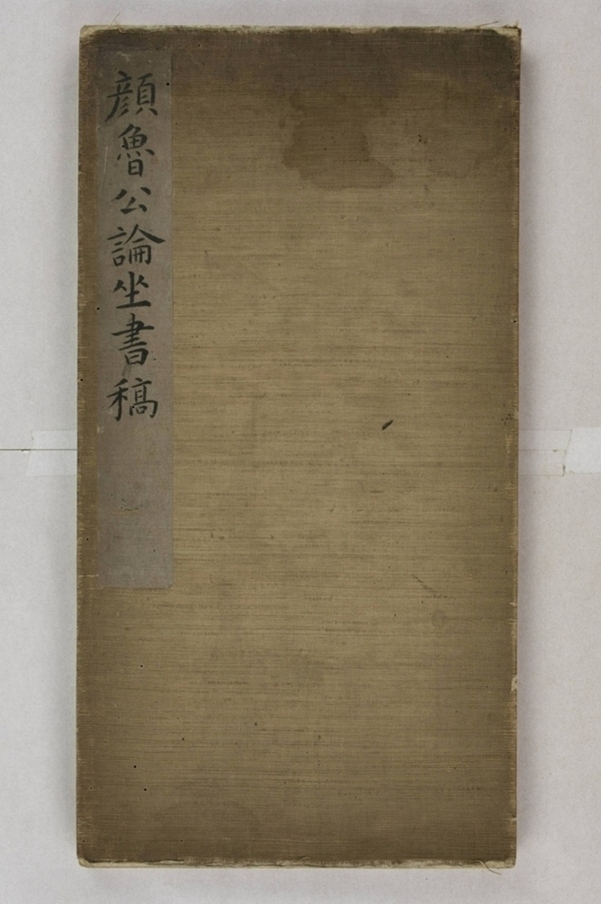 顔魯公論坐書稿